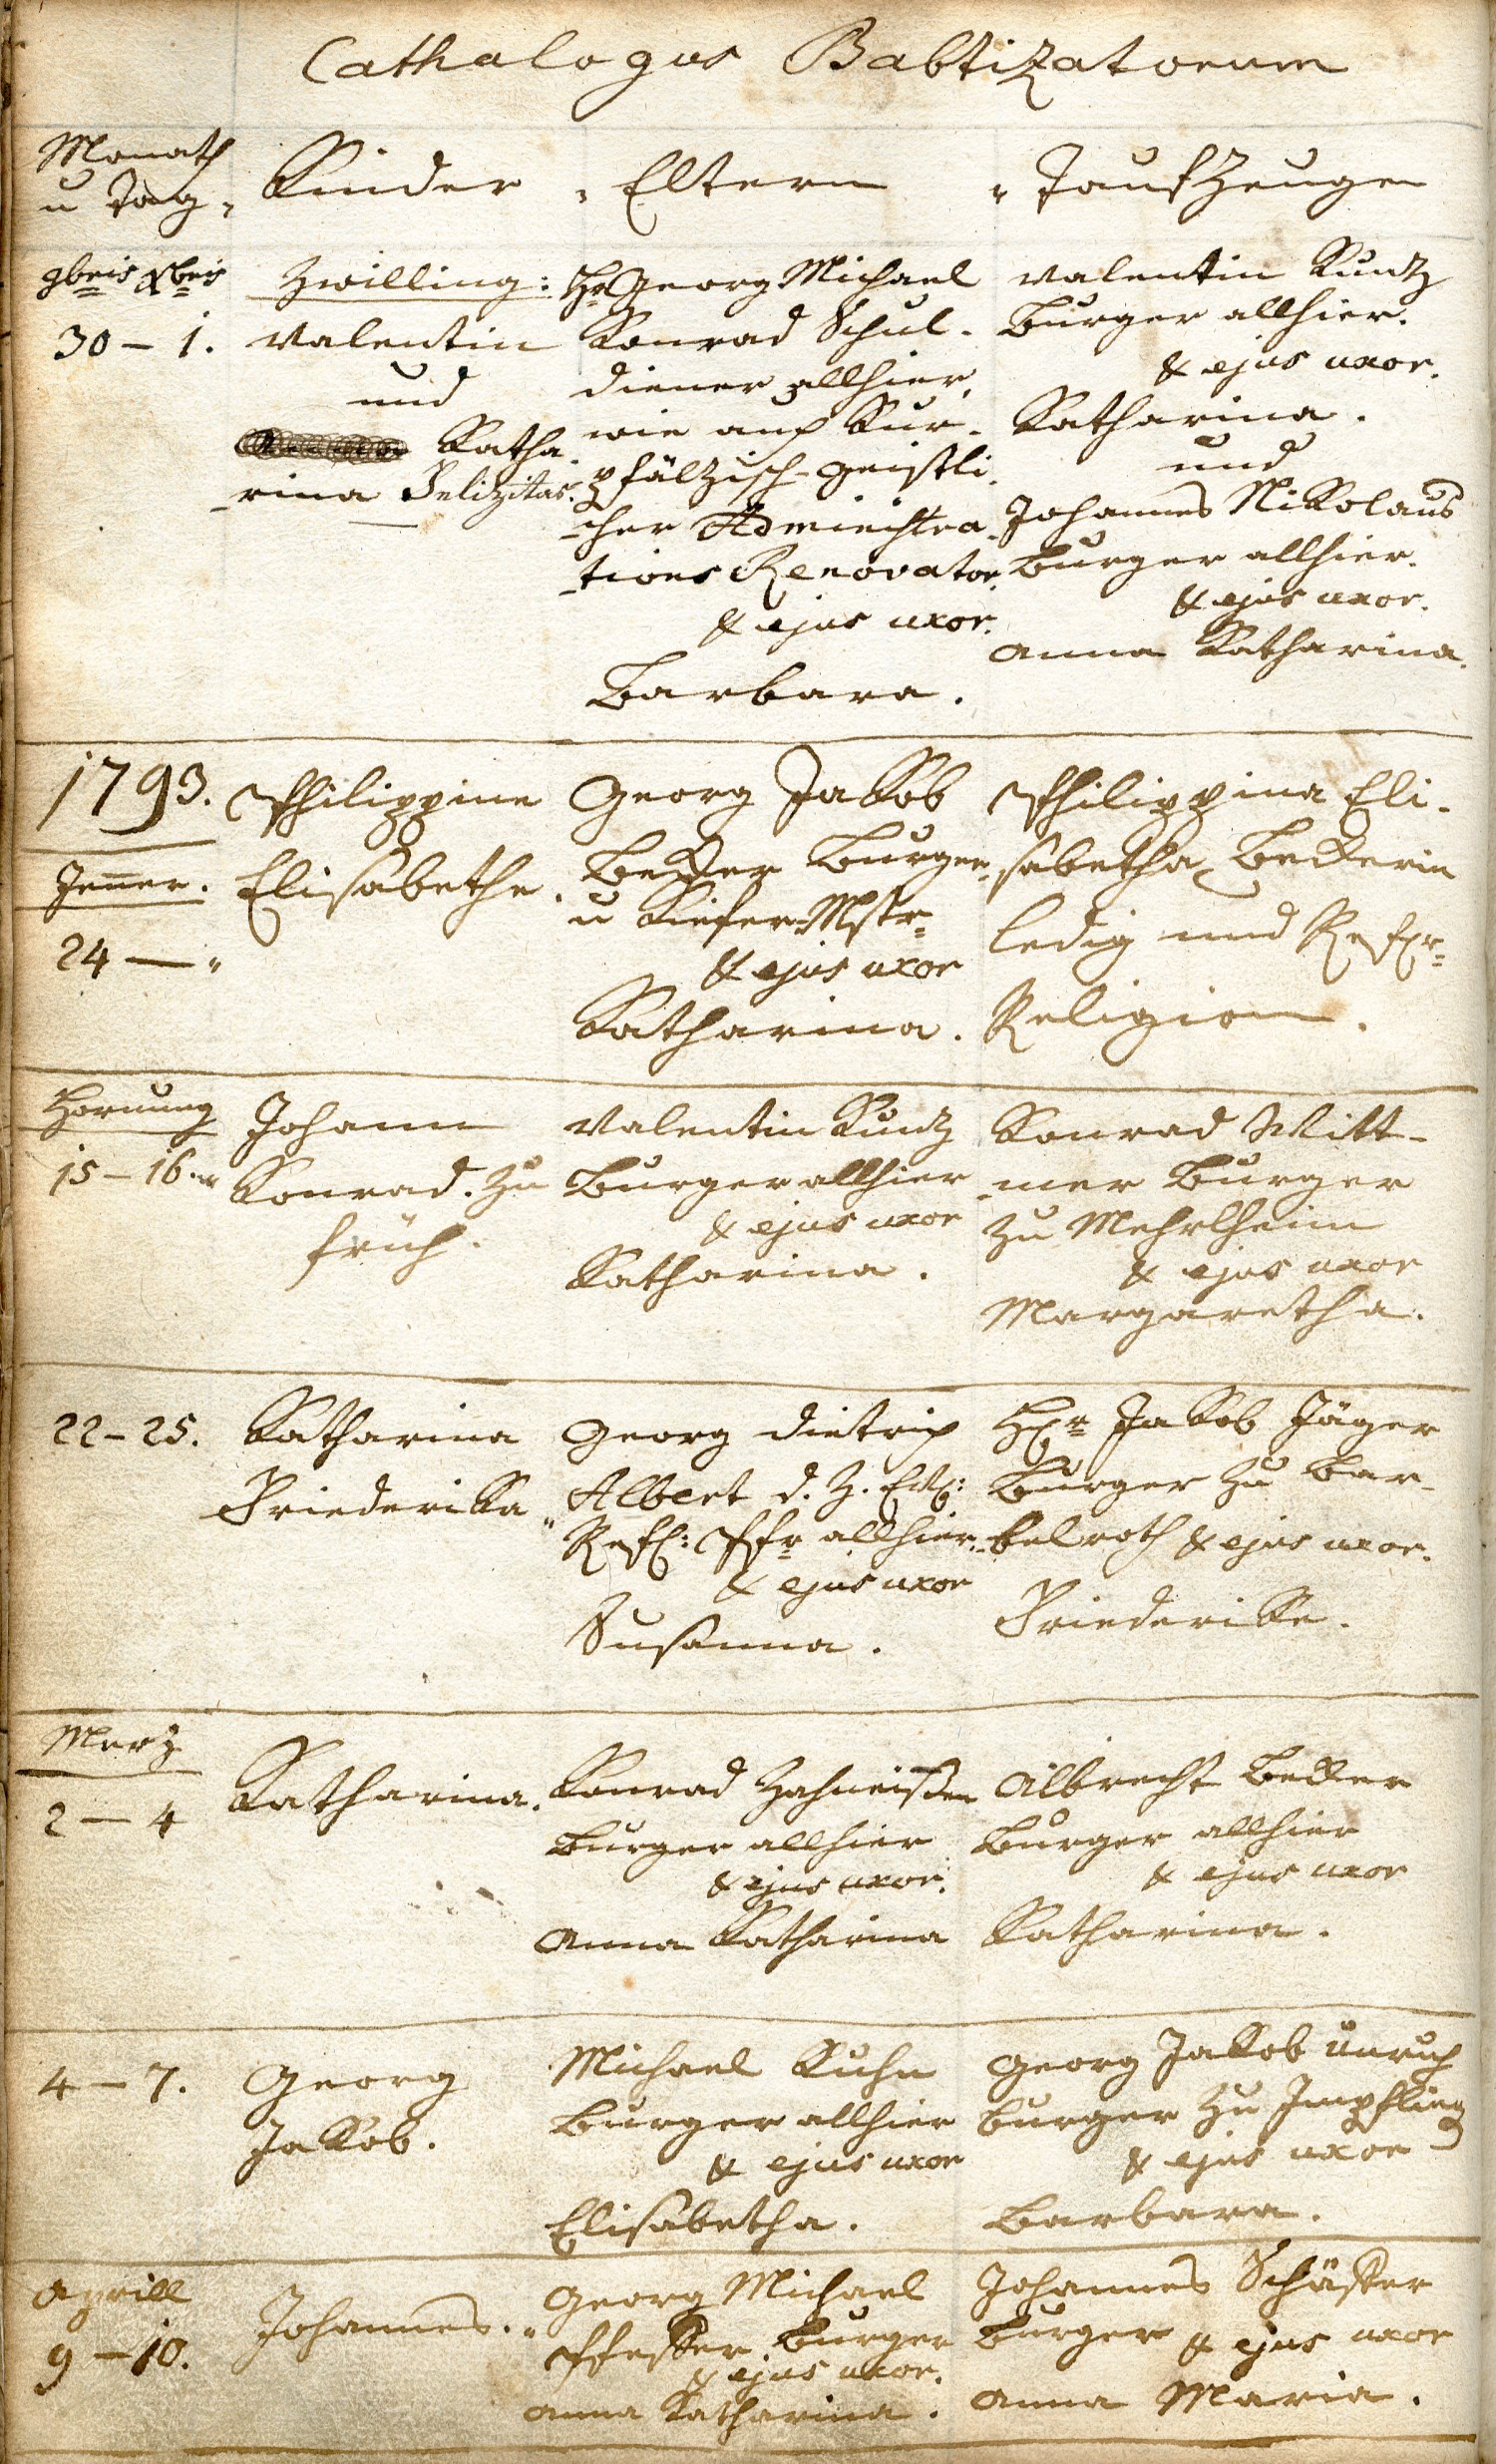 Cathalogus Babtizatorum
Monath
u Tag,
Kinder
Eltern
TaufZeugen
9bris Xbris
30 – 1.
Zwilling:
Valentin
und
Katha
rina Felizitas.
Hr. Georg Michael
Konrad Schul-
diener allhier,
wie auch Kur-
pfälzisch-geistli-
cher Admiistra-
tions Renovator.
& ejus uxor.
Barbara.
Valentin Kuntz
Burger allhier.
& ejus uxor.
Katharina.
und
Johannes Nikolaus
Burger allhier.
& ejus uxor.
Anna Katharina.
1793.
Jenner.
24 –
Philippine
Elisabethe.
Georg Jakob
Becker Burger
u KieferMstr.
& ejus uxor
Katharina.
Philippina Eli-
sabetha Beckerin
ledig und Refr.
Religion.
Hornung
15 – 16.
Johann
Konrad. Zu
früh.
Valentin Kuntz
Burger allhier
& ejus uxor
Katharina.
Konrad Witt-
mer Burger
zu Mehrlheim
& ejus uxor
Margaretha.
22 – 25.
Katharina
Friederika
Georg Dietrich
Albert d. Z.
Ref: Pfr allhier.
& ejus uxor
Susanna.
Hr. Jakob Jäger
Burger zu Bar-
belroth & ejus uxor.
Friederike.
Merz
2 – 4
Katharina.
Konrad Zahneißen
Burger allhier
& ejus uxor.
Anna Katharina
Albrecht Becker
Burger allhier
& ejus uxor
Katharina.
4 – 7.
Georg
Jakob.
Michael Kuhn
Burger allhier
& ejus uxor
Elisabetha.
Georg Jakob Unruh
Burger zu Impfling
& ejus uxor
Barbara.
Aprill
9 – 10.
Johannes.
Georg Michael
Pfeffer Burger
& ejus uxor.
Anna Katharina.
Johannes Schäffer
Burger & ejus uxor
Anna Maria.